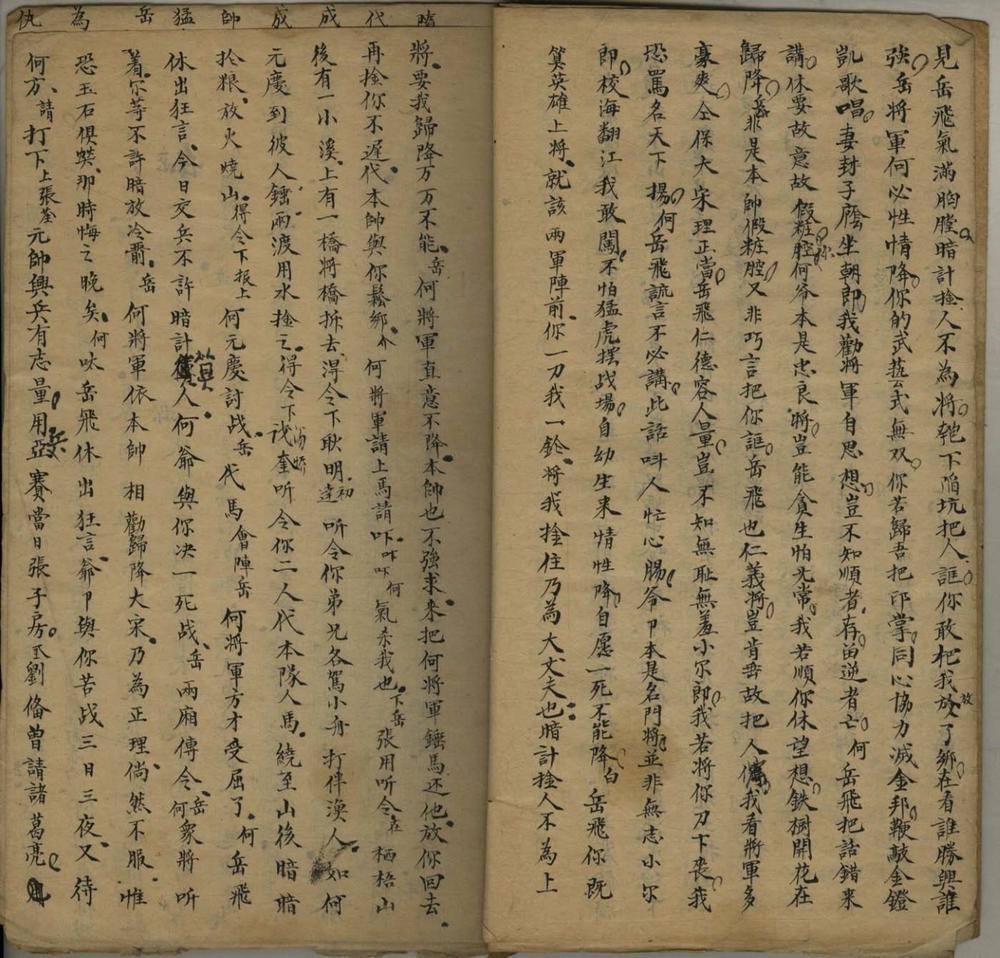 見岳飛氣滿胸膛暗計捨人不為將砲下陷坑把人誆你敢把我放了鄉在看誰勝與誰
強岳將軍何必性情降你的武芸武無双你若歸吾把印掌同心協力滅金邦鞭敲金鐙
凱歌唱妻封子廕坐朝郎我勸將軍自思想豈不知順者存留逆者亡何岳飛把話錯來
講休要故意故假粧腔何爷本是忠良將豈能貪生怕死常我若順你休望想鉄樹開花在
歸降岳非是本帥假粧腔又非巧言把你誆岳飛也仁義將豈肯故把人傷我看將軍多
豪爽仝保大宋理正當岳飛仁德容人量豈不知無耻無羞小尔郎我若將你刀下喪我
恐罵名天下揚何岳飛謊言不必講此話叫人忙心腸爷卩本是名門將並非無志小尔
郎校海翻江我敢闖不怕猛虎摆战場自幼生来情性降自愿一死不能降白岳飛你既
算英雄上將就該兩軍陣前你一刀我一鈴將我捨住乃為大丈夫也暗計捨人不為上
將要我歸降万万不能岳何將軍直意不降本帥也不強求来把何將軍錘馬还他放你回去
再捨你不遲代本帥與你鬆鄉介何將軍請上馬請吓吓吓何氣杀我也下岳張用听令在栖梧山
後有一小溪上有一橋將橋拆去淂令下耿明初達听令你弟兄各駕小舟打伴漁人如何
元慶到彼人錘兩渡用水捨之得令下湯懷奎听令你二人代本隊人馬繞至山後暗暗
扵粮放火燒山得令下报上何元慶討战岳代馬會陣岳何將軍方才受屈了何岳飛
休出狂言今日交兵不許暗計算人何爺與你决一死战岳兩廂傳令岳何衆將听
着尔等不許暗放冷箭岳何將軍依本帥相勸歸降大宋乃為正理倘然不服惟
恐玉石俱焚那時悔之晚矣何呔岳飛休出狂言爺卩與你苦战三日三夜又待
何方請打下上張奎元帥興兵有志量用兵賽當日張子房王劉俻曾請諸葛亮
暗代成成帥猛岳為仇